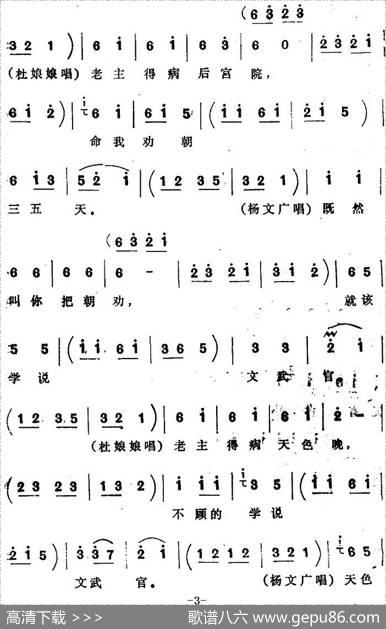 (6 3 2 3
3 2 1 ) | 6 i | 6 i | 6 3 | 6 0 | ( 2 3 2 i |
(杜娘娘唱) 老 主 得 病 后 宫 院，
6 i 2 ) | i 6 i | 6 i 5 | ( i i 6 i | 2 i 5 ) |
命 我 劝 朝
6 i 3 | 5 2 i | ( 1 2 3 5 | 3 2 1 ) | i i |
三 五 天。 (杨文广唱) 既 然
(6 3 2 i
6 6 | 6 6 | 6 - | 2 3 2 i | 3 i 2 ) | 6 5 |
叫 你 把 朝 劝， 就 该
5 5 | ( i i 6 i | 3 6 5 ) | 3 3 | 2 i |
学 说 文 武 官。
( 1 2 3 5 | 3 2 1 ) | 6 i | 6 i | 6 i | 2 - |
(杜娘娘唱) 老 主 得 病 天 色 晚，
( 2 3 2 3 | 1 3 2 ) | i i i | i 3 5 | ( i i 6 i |
不 顾 的 学 说
2 i 5 ) | 3 3 7 | 2 i | ( 1 2 1 2 | 3 2 1 ) | i 6 5 |
文 武 官。 (杨文广唱) 天 色
—3—
高清下载 >>> 歌谱八六 www.gepu86.com